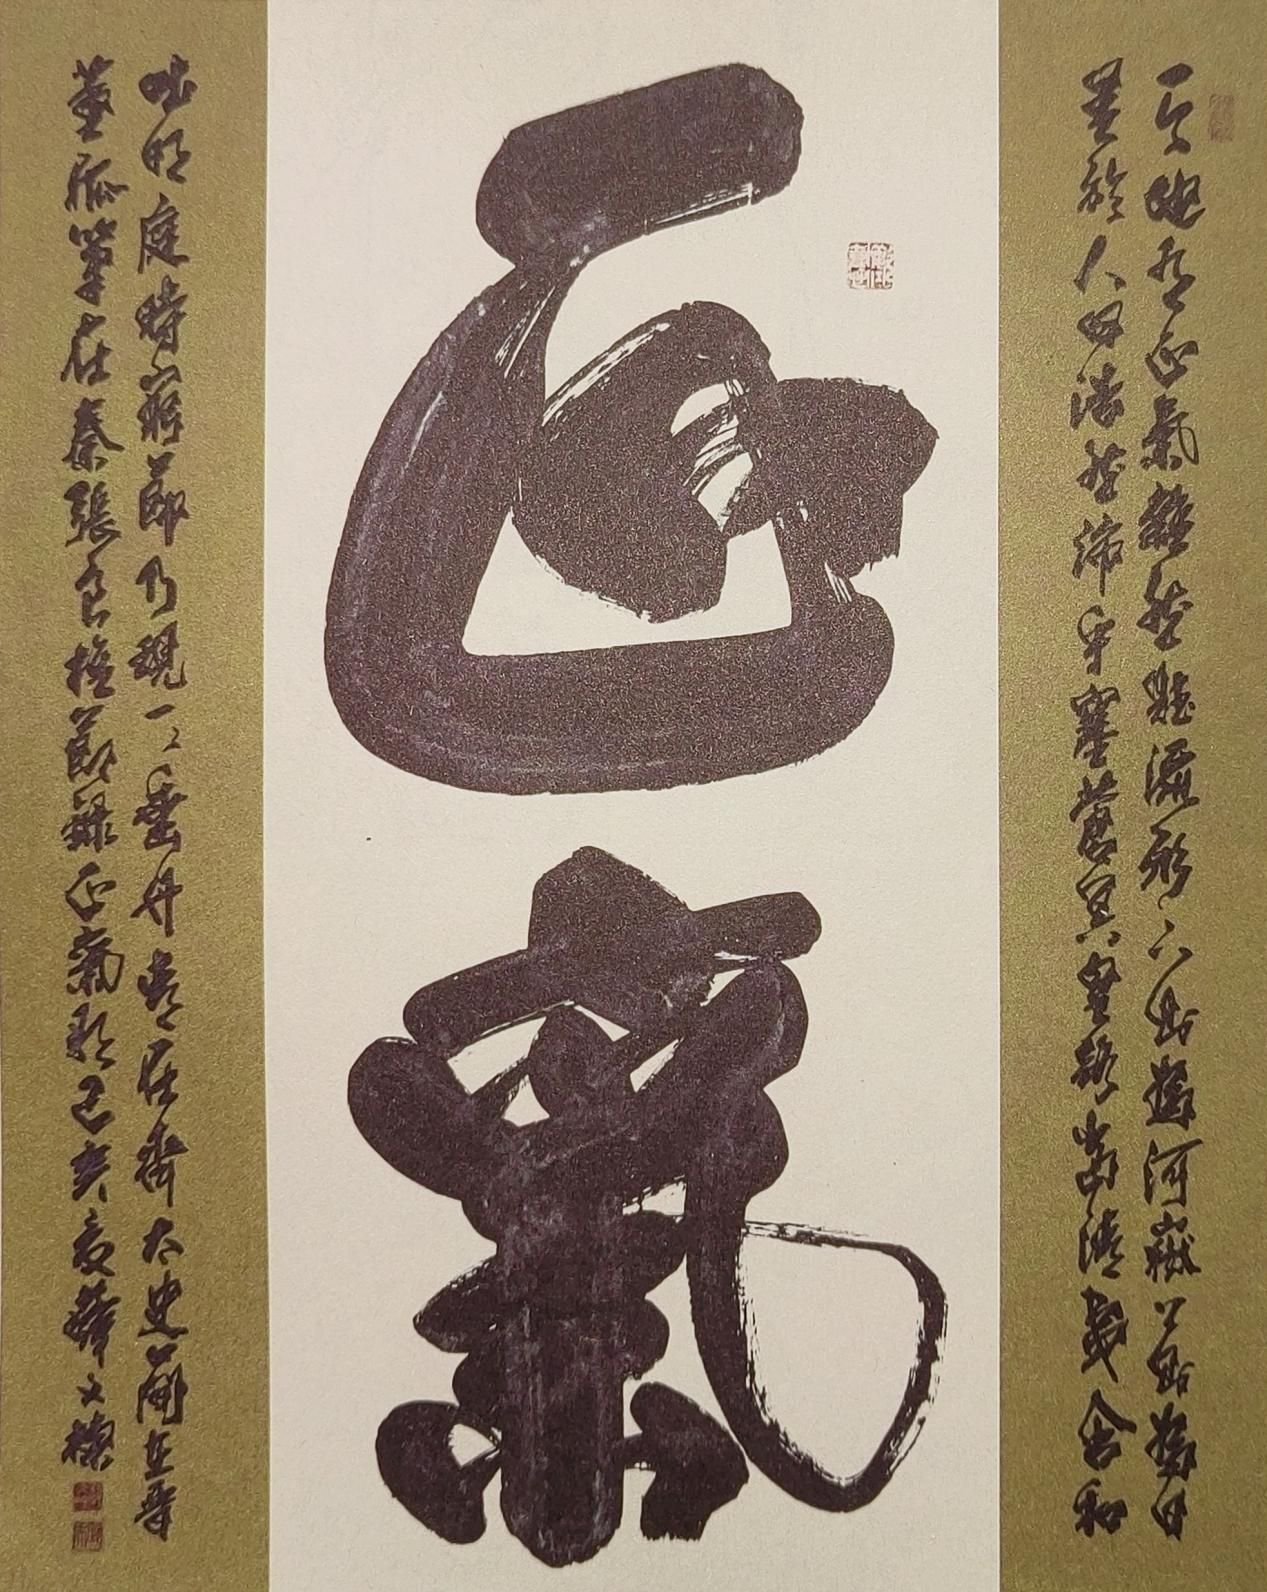 天地有正氣雜然賦流形下則為河嶽上則為日
星於人曰浩然沛乎塞蒼冥皇路當清夷含和
正氣
吐明庭時窮節乃現一一垂丹青在齊太史簡在晉
董狐筆在秦張良椎節錄正氣歌己亥夏薛文